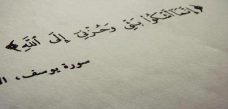 ﴿إِنَّمَا أَشْكُو بَثِّي وَحُزْنِي إِلَى اللَّهِ﴾
سورة يوسف،